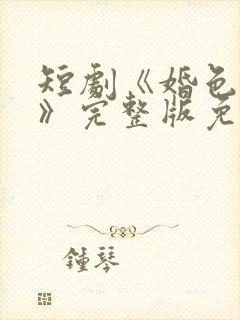 短劇《婚色
》完整版免
鍾琴